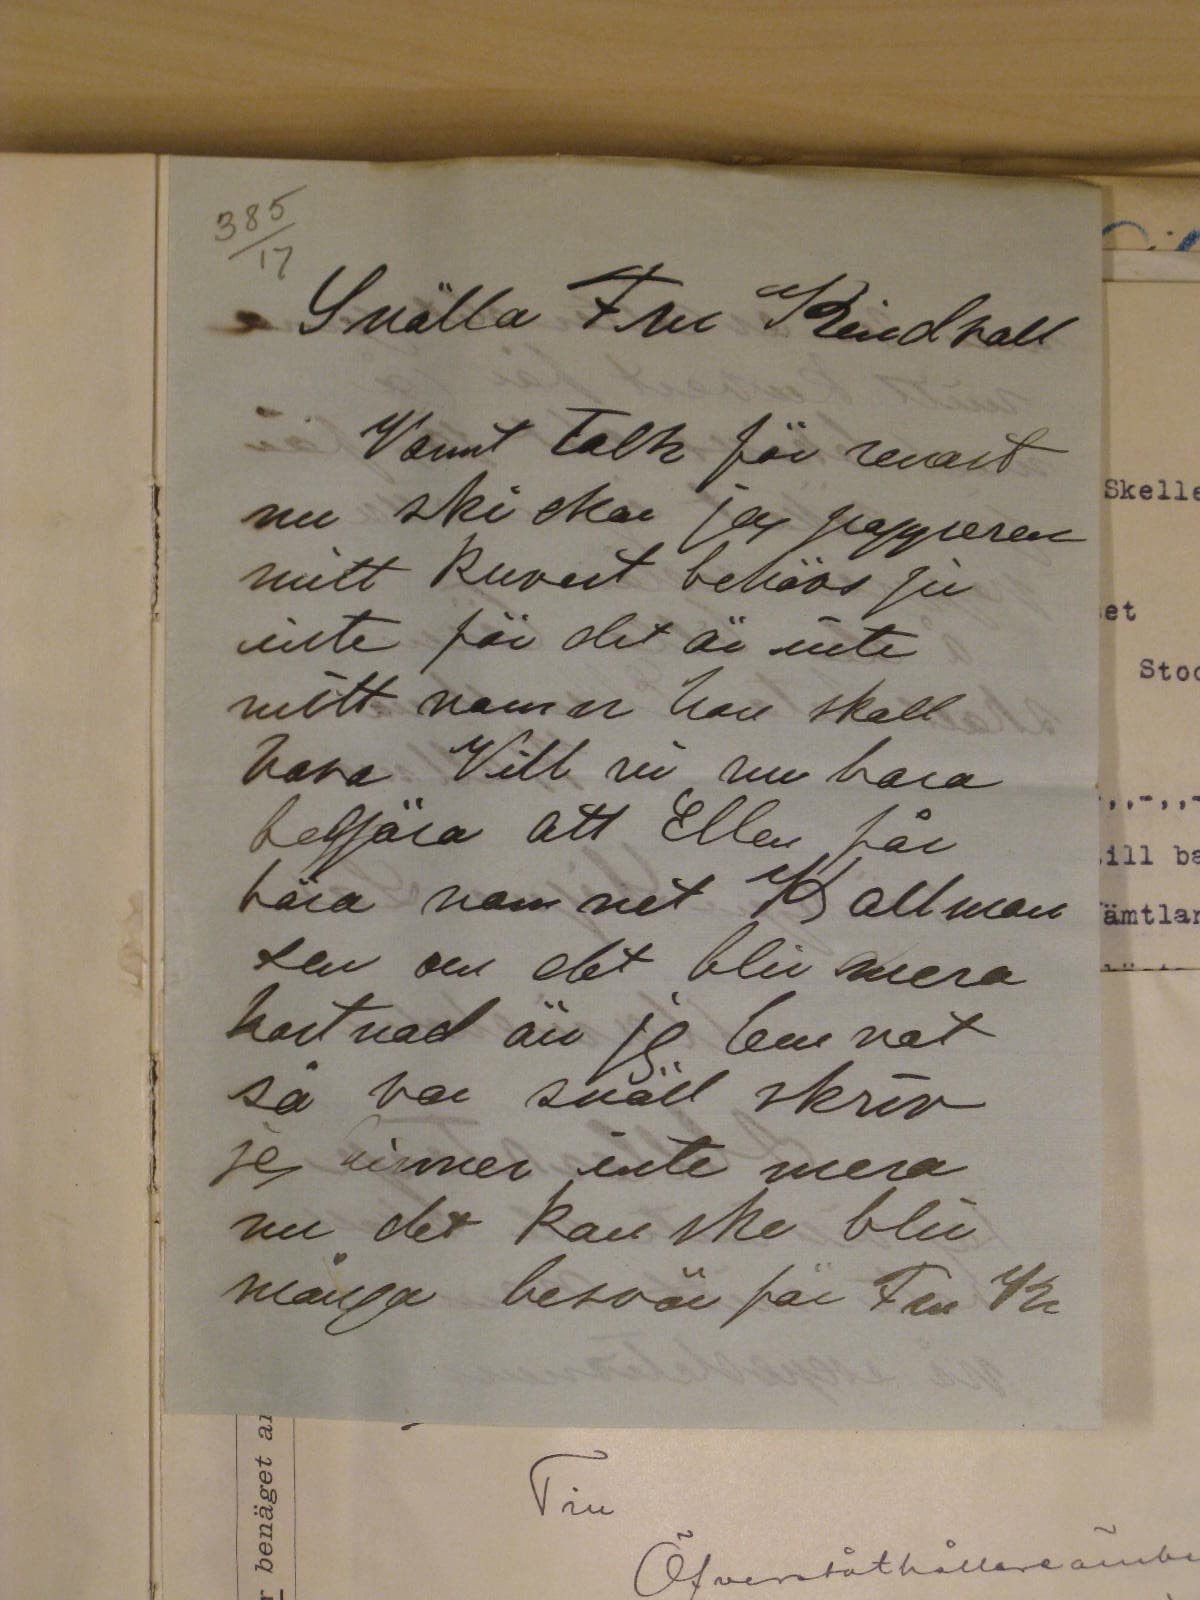 385
17
Snälla Fru Kindvall
Varmt Takk för senast
nu skickar jag papperen
mitt kuvert behövs ju
inte för det är inte
mitt namn hon skall
hava Vill ni nu bara
begjära att Ellen får
bära namnet Kallman
sen om det blir mera
kostnad än jg lemnat
så var snäll skriv
jeg hinner inte mera
nu det kanske blir
många besvär för Fru K
Skelle
et
Stoc
,,-,,-
ill be
ämtlan
r benäget an
Till
Öfverståthållareämbe